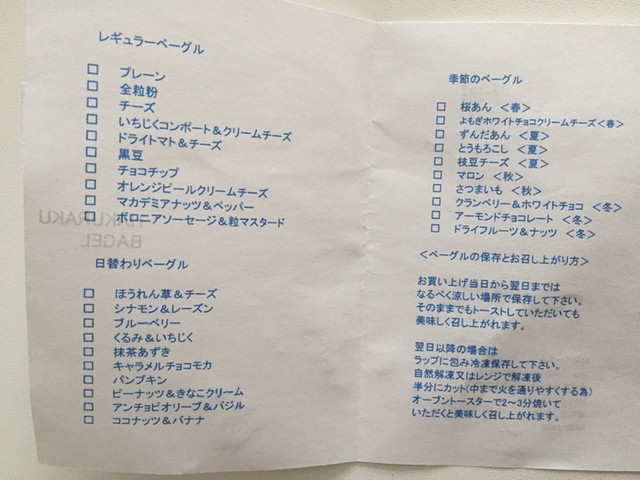 レギュラーベーグル
□ プレーン
□ 全粒粉
□ チーズ
□ いちじくコンポート＆クリームチーズ
□ ドライトマト＆チーズ
□ 黒豆
□ チョコチップ
□ オレンジピールクリームチーズ
□ マカデミアナッツ＆ペッパー
□ ボロニアソーセージ＆粒マスタード
HAKURAKU
BAGEL
日替わりベーグル
□ ほうれん草＆チーズ
□ シナモン＆レーズン
□ ブルーベリー
□ くるみ＆いちじく
□ 抹茶あずき
□ キャラメルチョコモカ
□ パンプキン
□ ピーナッツ＆きなこクリーム
□ アンチョビオリーブ＆バジル
□ ココナッツ＆バナナ
季節のベーグル
□ 桜あん ＜春＞
□ よもぎホワイトチョコクリームチーズ＜春＞
□ ずんだあん ＜夏＞
□ とうもろこし ＜夏＞
□ 枝豆チーズ ＜夏＞
□ マロン ＜秋＞
□ さつまいも ＜秋＞
□ クランベリー＆ホワイトチョコ ＜冬＞
□ アーモンドチョコレート ＜冬＞
□ ドライフルーツ＆ナッツ ＜冬＞
＜ベーグルの保存とお召し上がり方＞
お買い上げ当日から翌日までは
なるべく涼しい場所で保存して下さい。
そのままでもトーストしていただいても
美味しく召し上がれます。
翌日以降の場合は
ラップに包み冷凍保存して下さい。
自然解凍又はレンジで解凍後
半分にカット(中まで火を通りやすくする為)
オーブントースターで2～3分焼いて
いただくと美味しく召し上がれます。